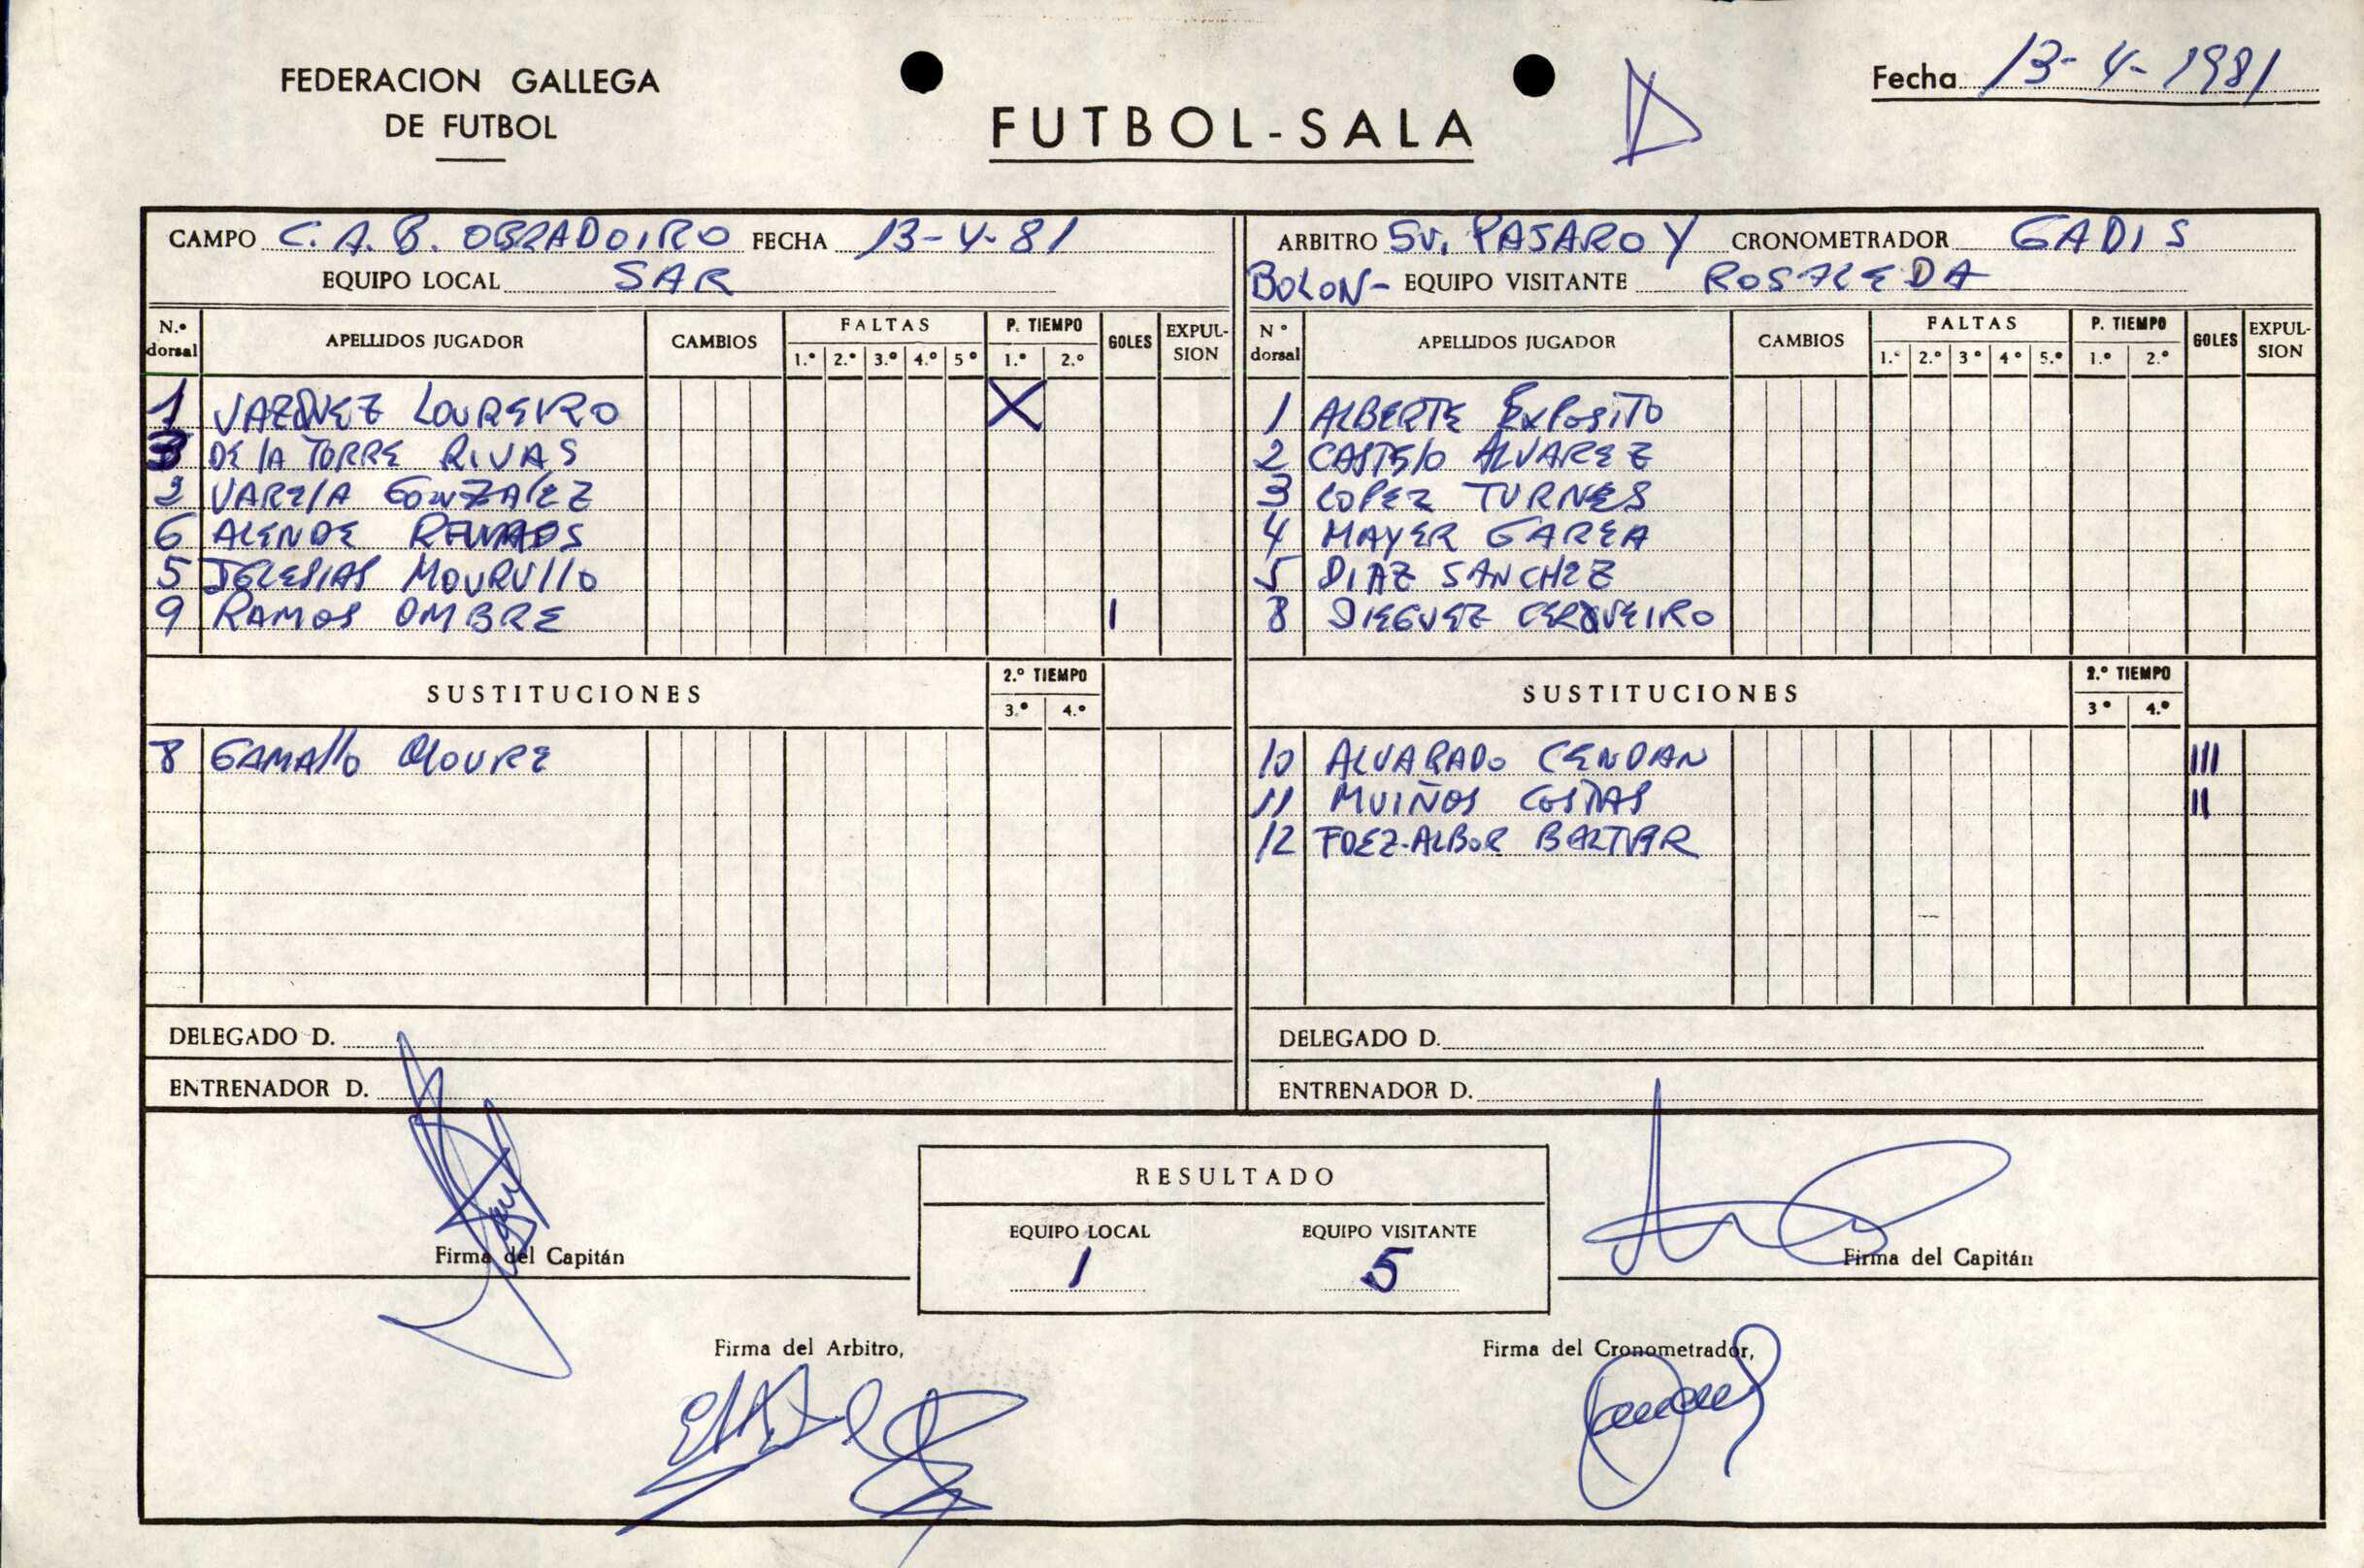 FEDERACION GALLEGA
DE FUTBOL
FUTBOL-SALA
Fecha 13-4-1981
CAMPO C.A.B. OBRADOIRO FECHA 13-4-81
EQUIPO LOCAL SAR
N.º dorsal APELLIDOS JUGADOR CAMBIOS FALTAS 1.º 2.º 3.º 4.º 5º P. TIEMPO 1.º 2.º GOLES EXPUL-SION
1 VAZQUEZ LOUREIRO X
3 DE LA TORRE RIVAS
2 VARELA GONZALEZ
6 ALENDE
5 IGLESIAS MOURULLO
9 RAMOS OMBRE I
SUSTITUCIONES 2.º TIEMPO 3.º 4.º
8 GAMALLO MOURE
DELEGADO D.
ENTRENADOR D.
ARBITRO Sr. PAJARO Y CRONOMETRADOR GADIS
BOLON- EQUIPO VISITANTE ROSALEDA
Nº dorsal APELLIDOS JUGADOR CAMBIOS FALTAS 1.º 2.º 3º 4º 5.º P. TIEMPO 1.º 2.º GOLES EXPUL-SION
1 ALBERTE EXPOSITO
2 CASTELO ALVAREZ
3 LOPEZ TURNES
4 MAYER GAREA
5 DIAZ SANCHEZ
8 DIEGUEZ CERQUEIRO
SUSTITUCIONES 2.º TIEMPO 3º 4.º
10 ALVARADO CENDAN III
11 MUIÑOS COSTAS II
12 FDEZ-ALBOR BALTAR
DELEGADO D.
ENTRENADOR D.
RESULTADO
EQUIPO LOCAL EQUIPO VISITANTE
1 5
Firma del Capitán
Firma del Capitán
Firma del Arbitro,
Firma del Cronometrador,